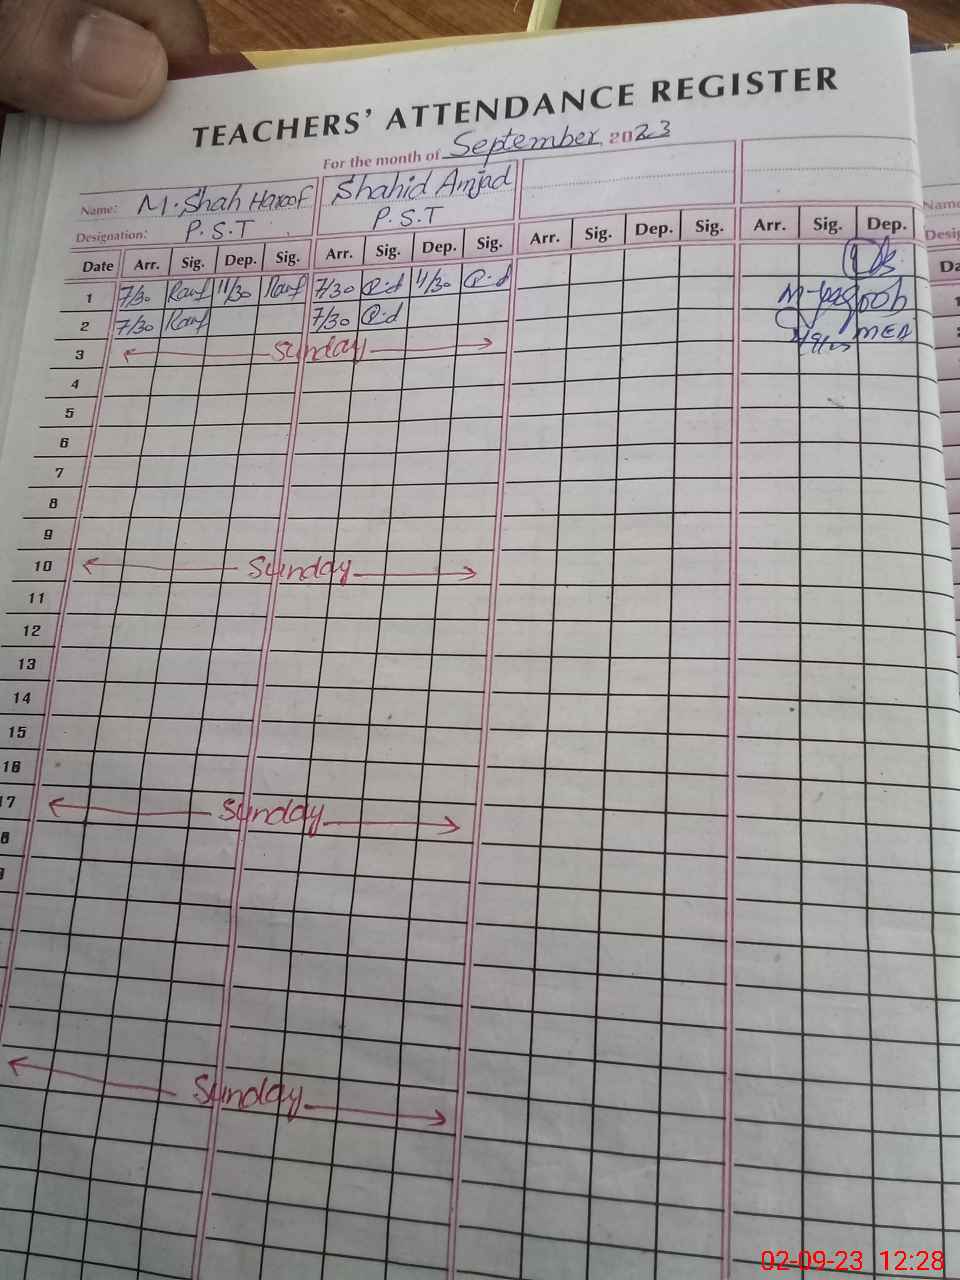 TEACHERS' ATTENDANCE REGISTER
For the month of September, 2023
Name: M. Shah Haroof Shahid Amjad Name
Designation: P.S.T P.S.T Desig
Date Arr. Sig. Dep. Sig. Arr. Sig. Dep. Sig. Arr. Sig. Dep. Sig. Arr. Sig. Dep. Da
1 7/30 Rauf 11/30 Rauf 7/30 11/30
2 7/30 Rauf 7/30
MEA
3 Sunday
4
5
6
7
8
9
10 Sunday
11
12
13
14
15
16
17 Sunday
Sunday
02-09-23 12:28